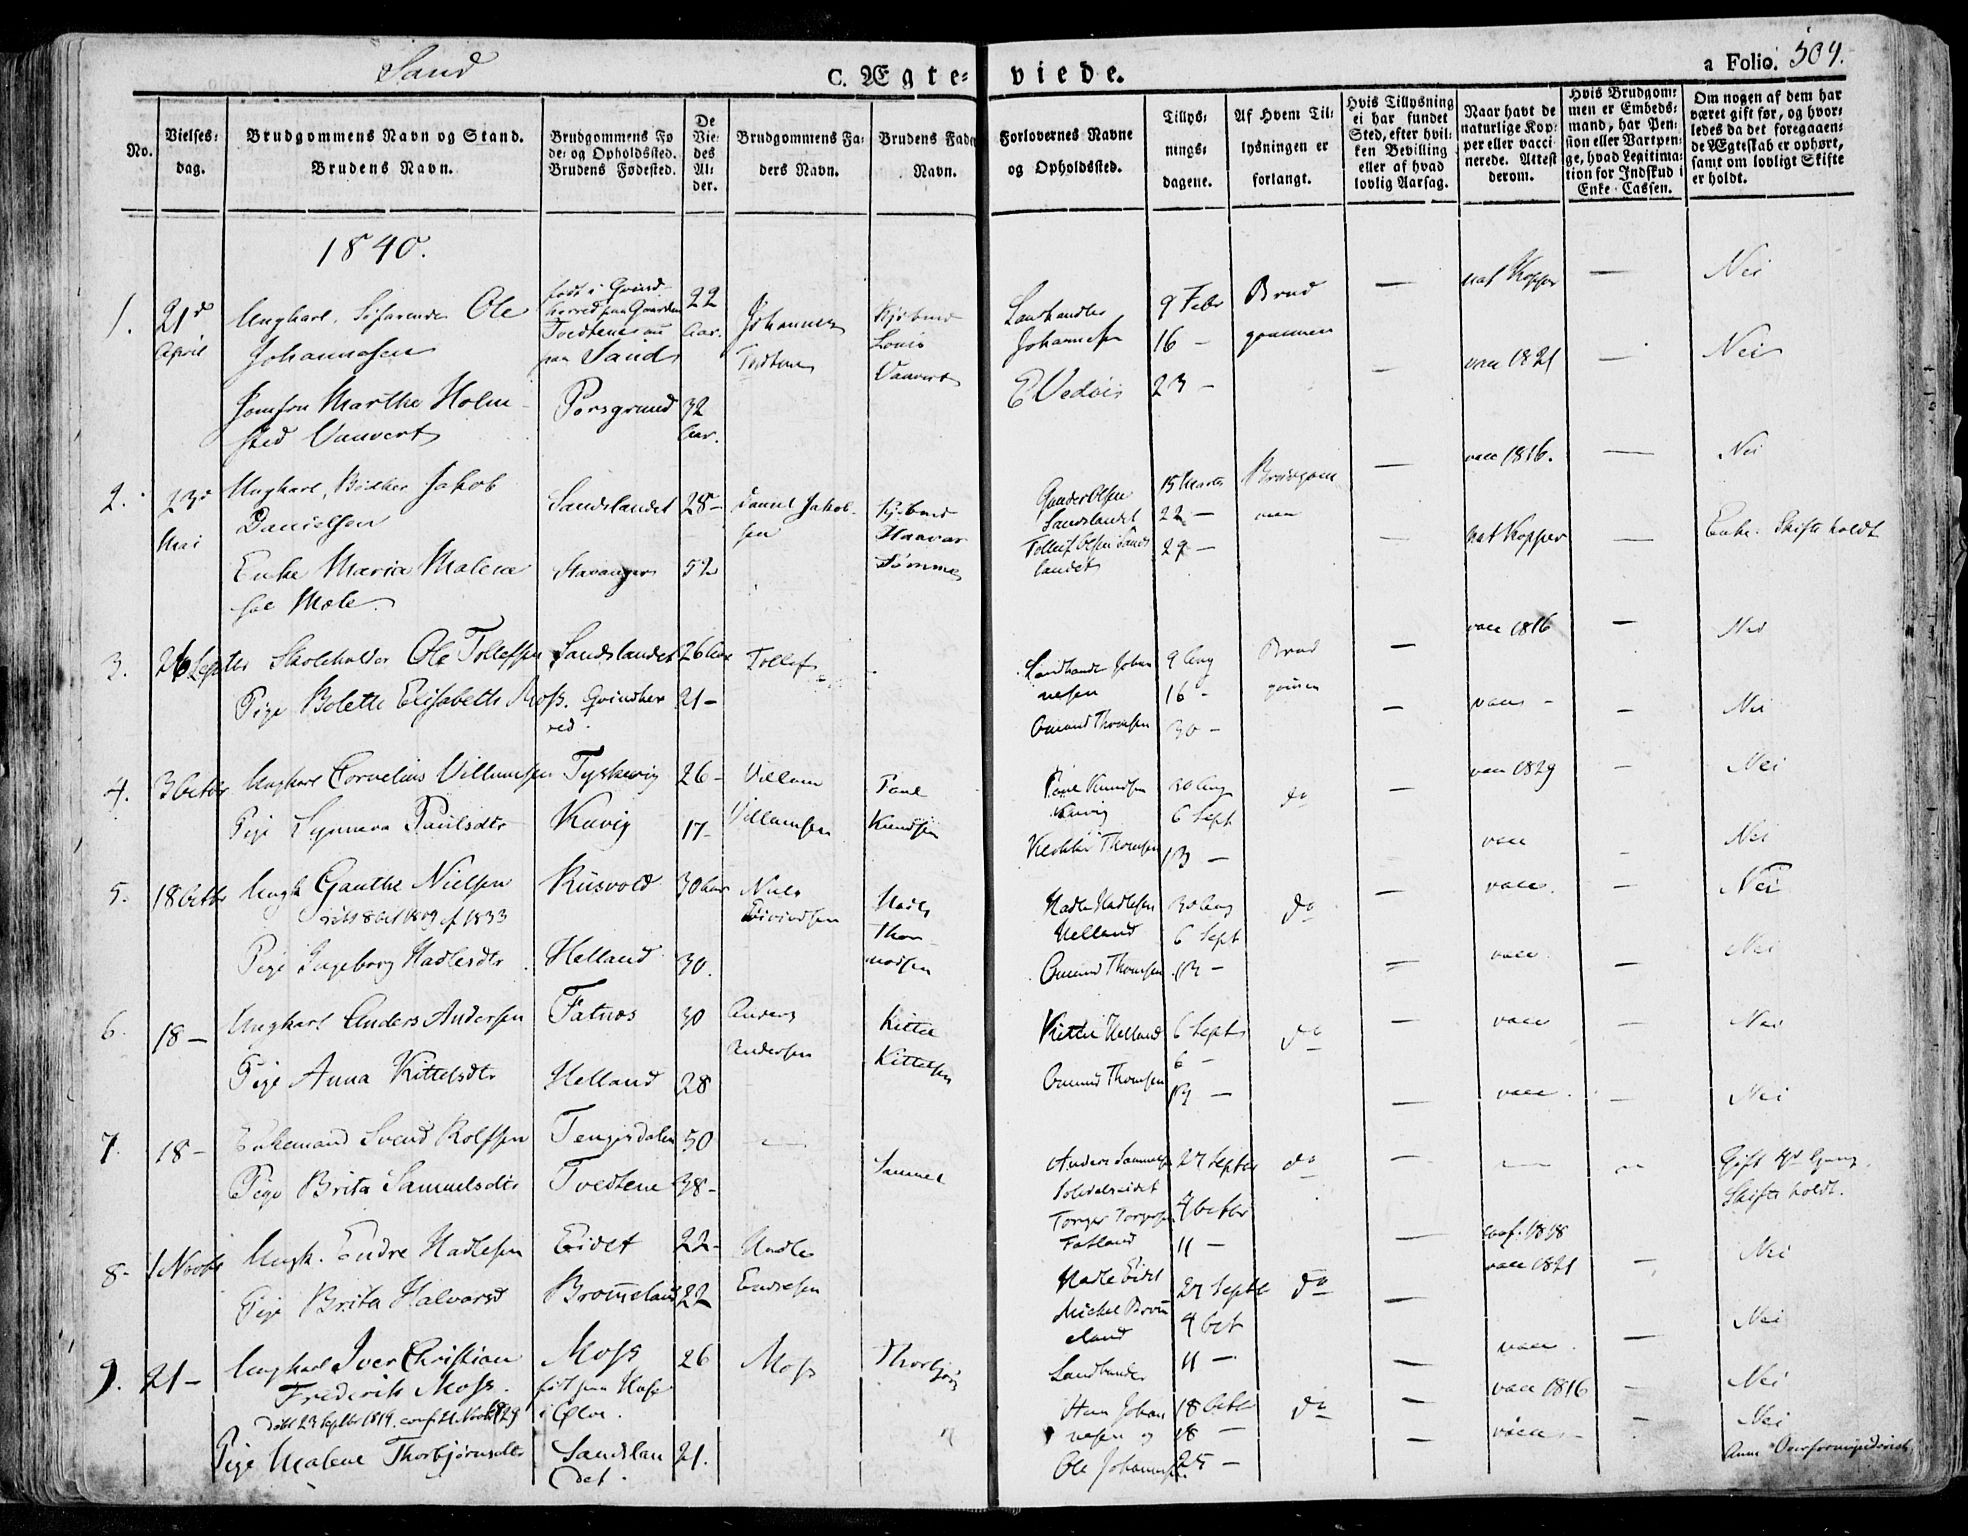 Sand
C. Ægte-
viede.
a Folio. 504.
No.
Vielses-
dag.
Brudgommens Navn og Stand.
Brudens Navn.
Brudgommens Fø
de- og Opholdssted.
Brudens Fødested.
De
Vie-
des
Al-
der.
Brudgommens Fa-
ders Navn.
Brudens Fader
Navn.
Forlovernes Navne
og Opholdssted.
Tillys-
nings-
dagene.
Af Hvem Til-
lysningen er
forlangt.
Hvis Tillysning
ei har fundet
Sted, efter hvil-
ken Bevilling
eller af hvad
lovlig Aarsag.
Naar havt de
naturlige Kop-
per eller vacci
nerede. Attest
derom.
Hvis Brudgom-
men er Embeds-
mand, har Pen-
sion eller Vartpen-
ge, hvad Legitima-
tion for Indskud i
Enke Cassen.
Om nogen af dem har
været gift før, og hvor-
ledes da det foregaaen-
de Ægteskab er ophørt,
samt om lovligt Skifte
er holdt.
1840.
1. 21de April
Ungkarl, Søfarende Ole
Johannesen
Tvedtene nu
paa Sand
22 Aar.
Johannes
Tvedtene
Kjøbmd
Louis
Vauvert
Landhandler
Johannesen
E Vedøis
9 Febr
16 —
23 —
Brud
gommen
—
nat Kopper
—
Nei
Jomfru Marthe Holm-
sted Vauvert
Porsgrund
32 Aar.
—
vacc 1821
—
Nei
2. 23de Mai
Ungkarl, Bødker Jakob
Danielsen
Sandslandet
28 —
Daniel Jakob-
sen
Kjøbmd
Haavar
Tømme
Gunder Olsen
Sandslandet
Tollef Olsen Sands
landet
15 Marts
22 —
29 —
Brudgom
men
—
vacc 1816.
—
Nei
Enke Maria Malene
Stavanger
52
—
nat Kopper
—
Enke. Skifte holdt
3. 26 Septbr
Skoleholder Ole Tollefsen
Sandslandet
26 Aar
Tollef
Landhandl Johan
nesen
Omund Thomsen
9 Aug
16 —
30 —
Brud
gommen
—
vacc 1816
—
Nei
Pige Bolette Elisabeth Moss.
Qvindher
red.
21 —
—
vacc —
—
Nei
4. 3 Octbr
Ungkarl Cornelius Villumsen
Tyskevig
26 —
Villum
Villumsen
Paul
Knudsen
Paul Knudsen
Kavig
Thomsen
30 Aug
6 Sept
13 —
do
—
vacc 1829
—
Nei
Pige Synneva Paulsdtr
Kavig
17 —
vacc
—
Nei
5. 18 Octbr
Ungk Gauthe Nielsen
Riisvold
30 Aar
Niels
Eivindsen
Hadle
Thor-
modsen
Hadle Hadlesen
Helland
Omund Thomsen
30 Aug
6 Sept
13 —
do
—
vacc.
—
Nei
Pige Ingeborg Hadlesdtr
Helland
30.
—
vacc.
—
Nei
6. 18 —
Ungkarl Anders Andersen
Fatnes
30
Anders
Andersen
Kittel
Kittelsen
Kittel Helland
Omund Thomsen
6 Septr
6 —
13 —
do
—
vacc
—
Nei
Pige Anna Kittelsdtr
Helland
28
—
vacc.
—
Nei
7. 18 —
Enkemand Svend Rolfsen
Tengesdalen
50
—
Samuel
Anders Samuelsen
Torger Torgersen
Fatland
27 Septbr
4 Octbr
11 —
do
—
Skifte holdt.
Pige Brita Samuelsdtr
Tvedtene
38 —
8. 1 Novbr
Ungk. Endre Hadlesen
Eidet
22 —
Hadle
Endresen
Hadle Eidet
Michel Brom̄
eland
27 Septbr
4 Oct
11 —
do
—
vacc 1821
—
Nei
Pige Brita Halvorsd
Brom̄eland
22
—
vacc.
—
Nei
9. 21 —
Ungkarl Iver Christian
Frederik Moss.
født 23 Septbr 1814. conf. 21 Novbr 1829
Moss
født paa
i Ølve.
26
Moss
Thorbjørn
Landhandler
Hans Johan
nesen og
Ole Johannesen
18 Octbr
18 —
25 —
do
—
vacc 1816
—
Nei
Pige Malene Thorbjørnsdtr
Sandslan
det.
21.
—
vacc. —
—
Nei